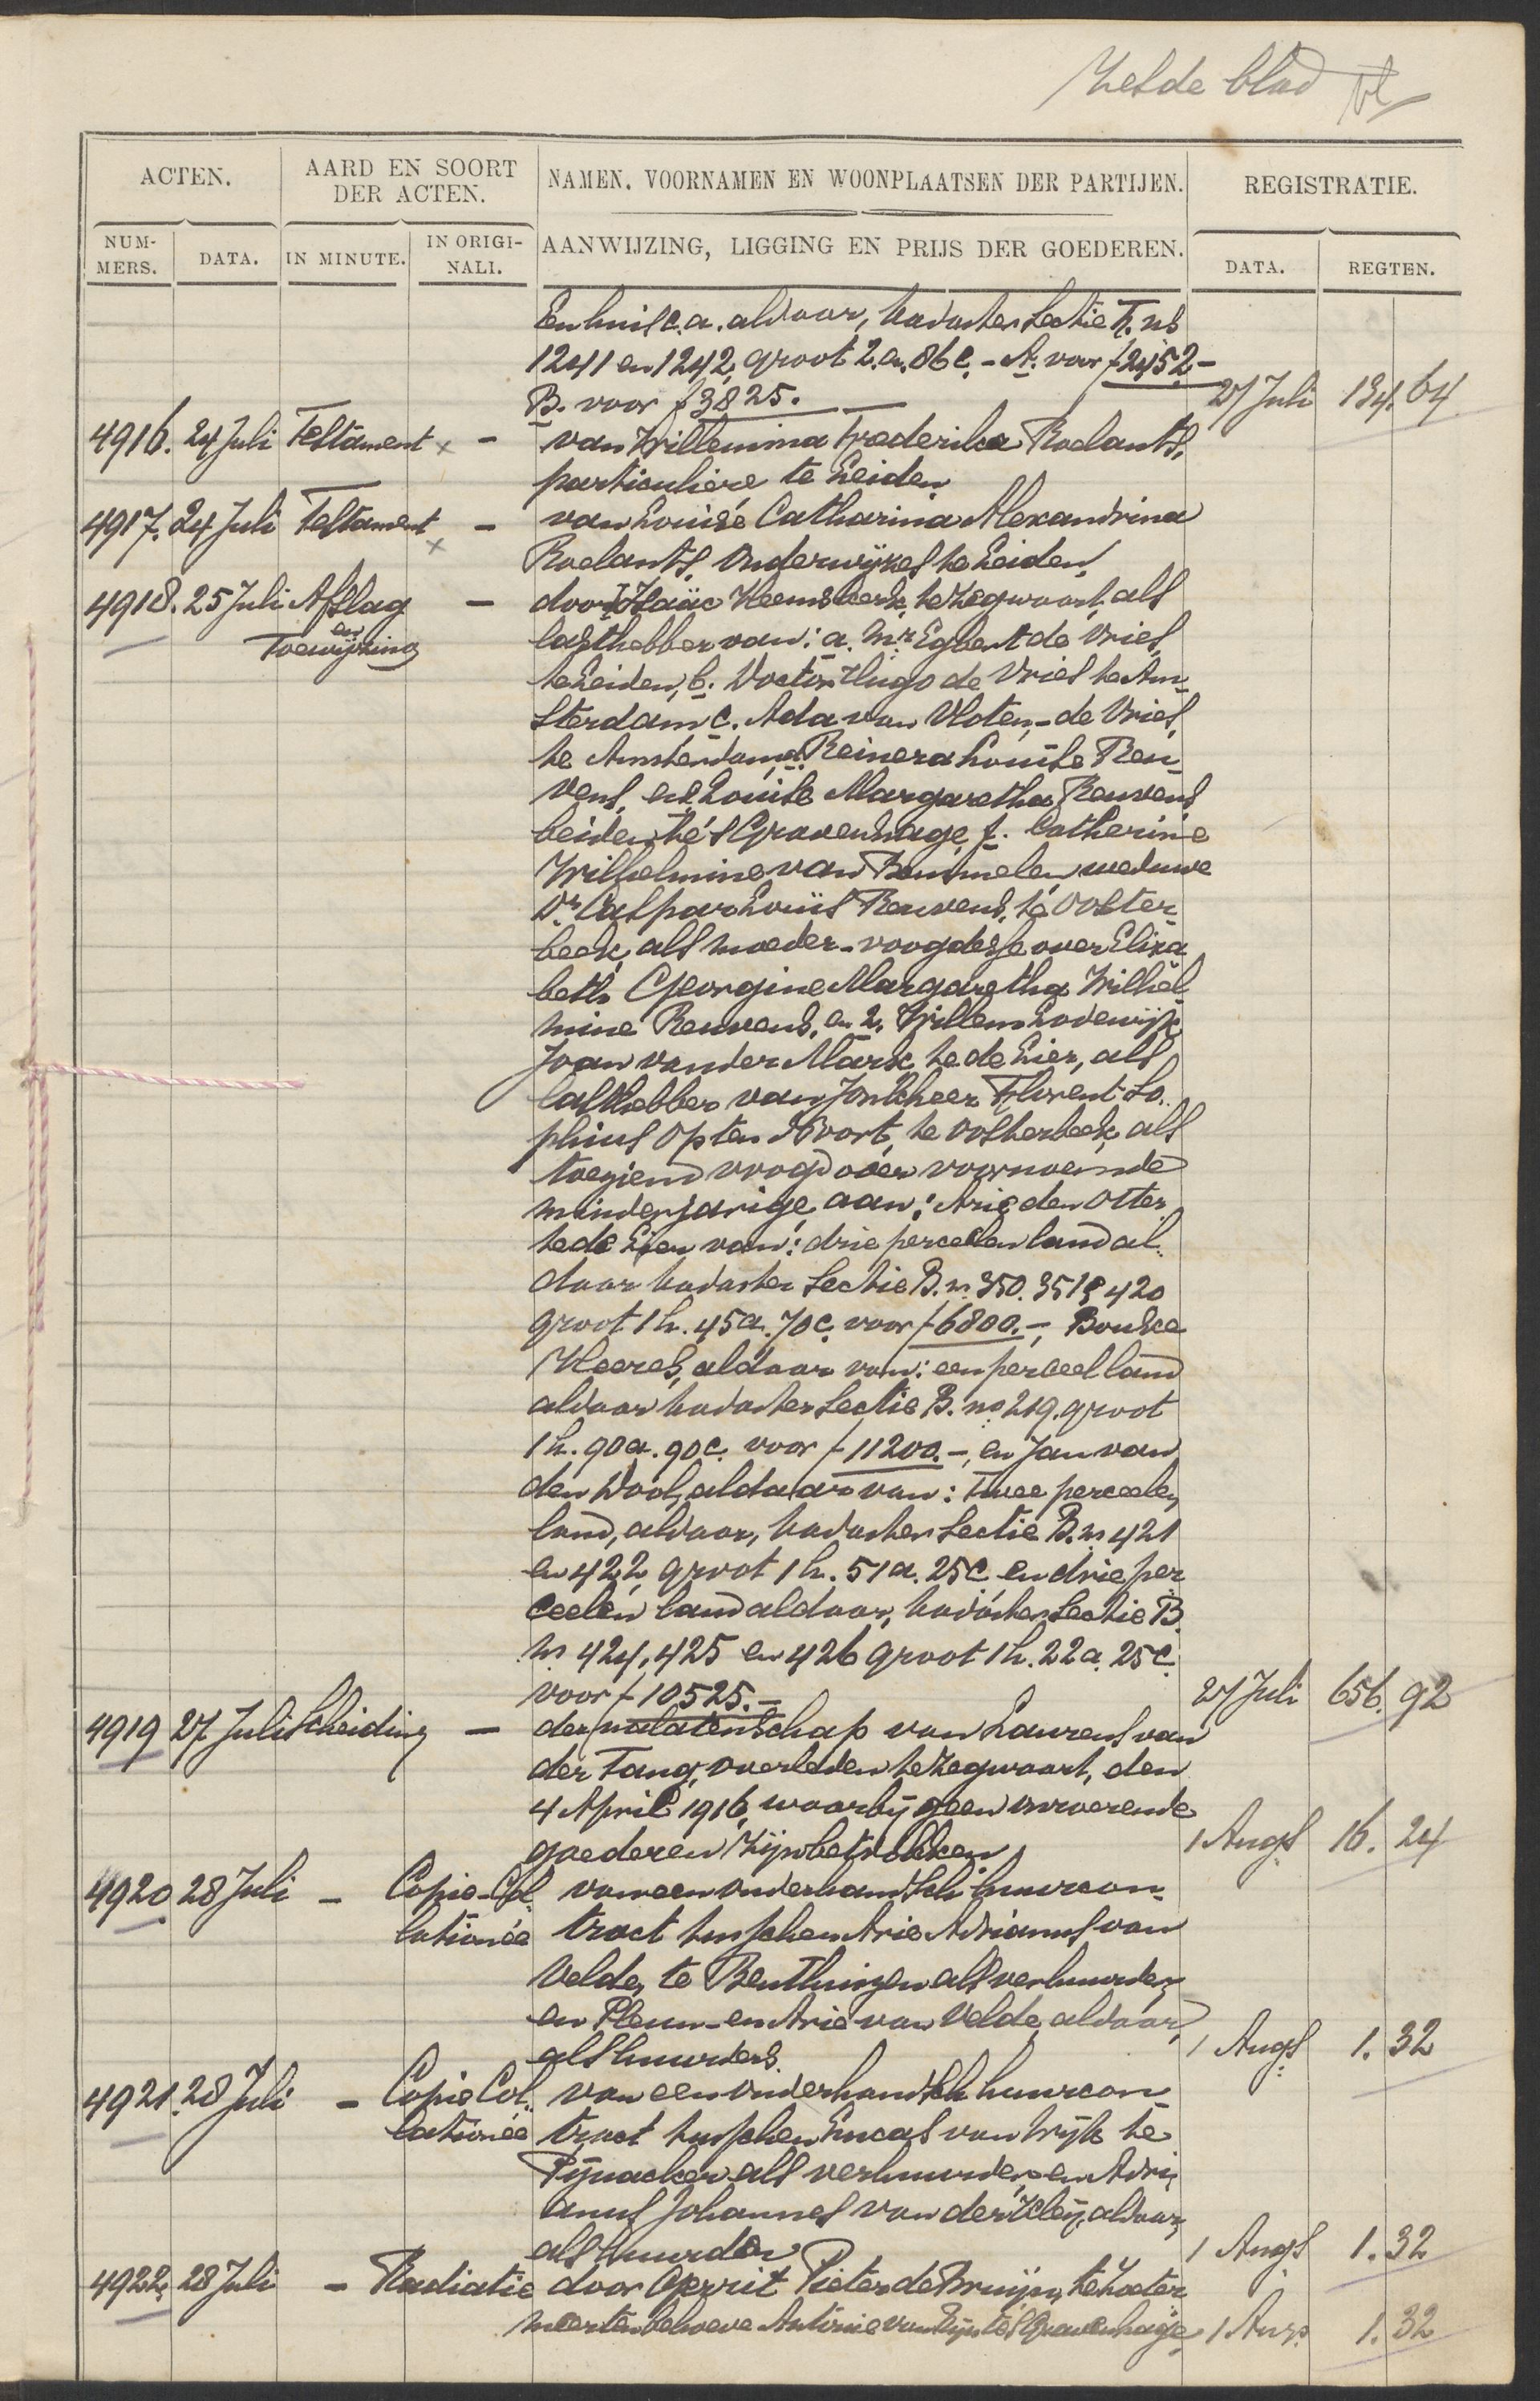 Zesde blad
ACTEN.
AARD EN SOORT DER ACTEN.
NAMEN, VOORNAMEN EN WOONPLAATSEN DER PARTIJEN.
REGISTRATIE.
NUMMERS.
DATA.
IN MINUTE.
IN ORIGINALI.
AANWIJZING, LIGGING EN PRIJS DER GOEDEREN.
DATA.
REGTEN.
En huis c.a. aldaar, kadaster Sectie ns
1241 en 1242, groot 2.a. 86 c. - A. voor f 2452 -
B. voor f 3825. 27 Juli 134. 64
4916. 24 Juli Testament x - van Willemina Frederika Roelants,
particuliere te Leiden
4917. 24 Juli Testament x - van Louise Catharina Alexandrina
Roelants, Onderwijzes te Leiden
4918. 25 Juli Afslag - door Izaäc Heemskerk, te Zegwaart, als
en
Toewijzing lasthebber van: a. Mr Egbert de Vries,
te Leiden, b. Doctor Hugo de Vries te Am-
sterdam c. Ada van Vloten - de Vries,
te Amsterdam, d. Reinera Louise Reu-
vens, en e. Louise Margaretha Reuvens
beiden te 's Gravenhage, f. Catherine
Wilhelmine van Bemmelen, weduwe
Dr Caspar Louis Reuvens, te Ooster-
beek, als moeder-voogdesse over Eliza
beth Georgine Margaretha Wilhel-
mine Reuvens, en 2. Willem Lodewijk
Joan van der Mark, te de Lier, als
lasthebber van Jonkheer Florent So-
phius op ten Noort, te Oosterbeek, als
toeziend voogd over voornoemde
minderjarige, aan: Arie den Otter
te de Lier van: drie perceelen land al-
daar kadaster Sectie B. ns 350. 351 & 420
groot 1 h. 45 a. 70 c. voor f 6800.-, Bouke
Heeres, aldaar van: een perceel land
aldaar kadaster Sectie B. no 219. groot
1 h. 90 a. 90 c. voor f 11200.-, en Jan van
den Dool, aldaar van: twee perceelen
land, aldaar, kadaster Sectie B. ns 421
en 422, groot 1 h. 51 a. 25 c en drie per
ceelen land aldaar, kadaster Sectie B.
ns 424, 425 en 426 groot 1 h. 22 a. 25 c.
voor f 10525.- 27 Juli 656. 92
4919 27 Juli Scheiding - der nalatenschap van Laurens van
der Tang, overleden te Zegwaart, den
4 April 1916, waarbij geen onroerende
goederen zijn betrokken. 1 Augs 16. 24
4920 28 Juli - Copie-Col van een onderhandsch huurcon-
lationée tract tusschen Arie Adrianus van
Velde, te Benthuizen als verhuurder,
en Pleun- en Arie van Velde, aldaar,
als huurders. 1 Augs 1. 32
4921. 28 Juli - Copie Col. van een onderhandsch huurcon-
lationée tract tusschen Lucas van Wijk te
Pijnacker als verhuurder, en Adri-
anus Johannes van der Kleij, aldaar,
als huurder 1 Augs 1. 32
4922. 28 Juli - Radiatie door Gerrit Pieter de Bruijn, te Zoeter
meer ten behoeve Antonie van Rijn te 's Gravenhage 1 Augs 1. 32